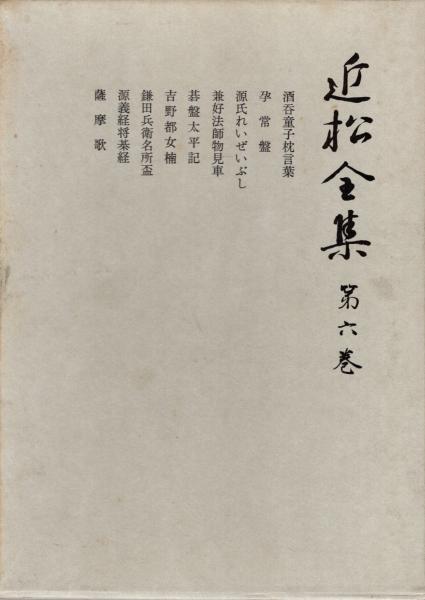 近松全集 第六巻
酒呑童子枕言葉
孕常盤
源氏れいぜいぶし
兼好法師物見車
碁盤太平記
吉野都女楠
鎌田兵衛名所盃
源義経将棊経
薩摩歌